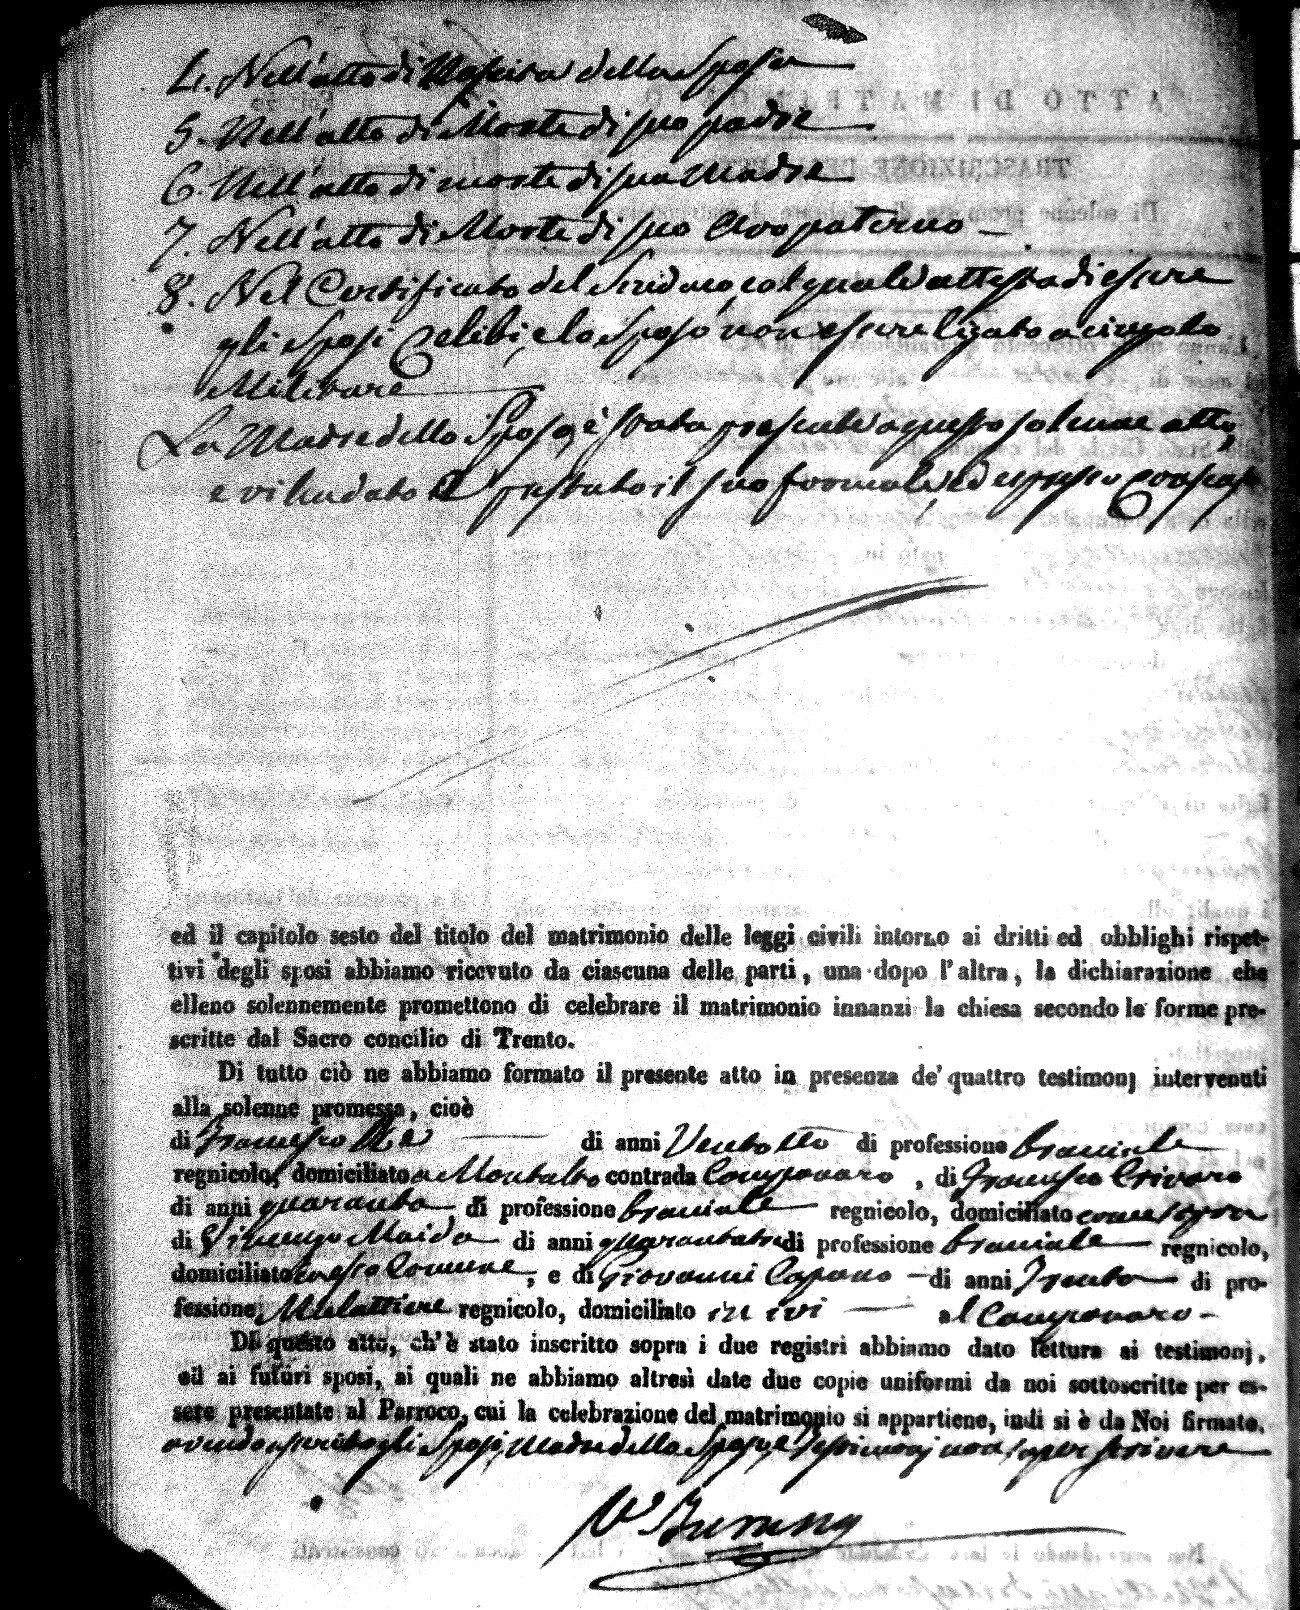 4. Nell'atto di Nascita della Sposa
5. Nell'atto di Morte di suo padre
6. Nell'atto di morte di sua Madre
7. Nell'atto di Morte di suo Avo paterno
8. Nel Certificato del Sindaco, col quale attesta di essere
gli Sposi Celibi, e lo Sposo non essere ligato a cingolo
Militare
La Madre dello Sposo, è stata presente a questo solenne atto,
e vi ha dato il prestato il suo formale, ed espresso Consenso
ed il capitolo sesto del titolo del matrimonio delle leggi civili intorno ai dritti ed obblighi rispet-
tivi degli sposi abbiamo ricevuto da ciascuna delle parti, una dopo l'altra, la dichiarazione che
elleno solennemente promettono di celebrare il matrimonio innanzi la chiesa secondo le forme pre-
scritte dal Sacro concilio di Trento.
Di tutto ciò ne abbiamo formato il presente atto in presenza de' quattro testimonj intervenuti
alla solenne promessa, cioè
di Francesco di anni Ventotto di professione bracciale
regnicolo, domiciliato a Montalto contrada , di Francesco Crivaro
di anni quaranta di professione bracciale regnicolo, domiciliato come sopra
di Vincenzo Maida di anni quarantatre di professione bracciale regnicolo,
domiciliato Comune, e di Giovanni Capano di anni Trenta di pro-
fessione Mulattiere regnicolo, domiciliato in ivi al
Di questo atto, ch'è stato inscritto sopra i due registri abbiamo dato lettura ai testimonj,
ed ai futuri sposi, ai quali ne abbiamo altresì date due copie uniformi da noi sottoscritte per es-
sere presentate al Parroco, cui la celebrazione del matrimonio si appartiene, indi si è da Noi firmato,
avendo asserito gli Sposi, Madre dello Sposo, e Testimonj non saper scrivere